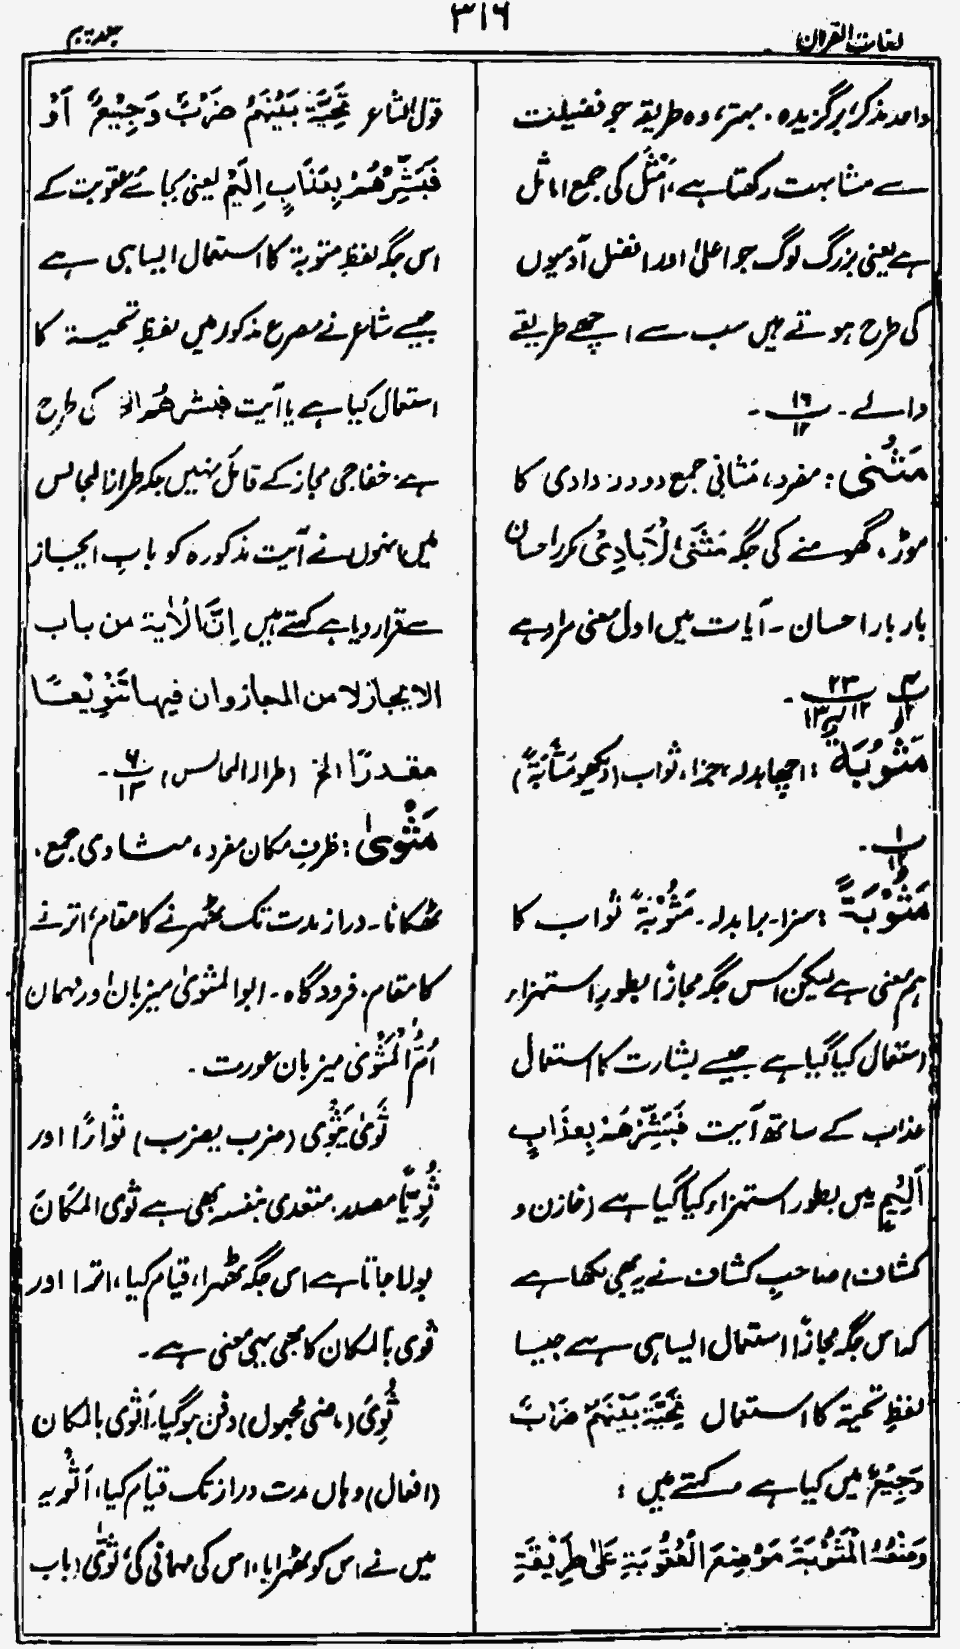 لغات القرآن
۳۱۶
جلد پنجم
واحد مذکر، برگزیدہ۔ بہتر، وہ طریقہ جو فضیلت
سے مشابہت رکھتا ہے، اَمْثَل کی جمع اماثل
ہے یعنی بزرگ لوگ جو اعلیٰ اور افضل آدمیوں
کی طرح ہوتے ہیں سب سے اچھے طریقے
والے۔ ۱۶/۱۲۔
مَثْنٰی : مفرد، مَثانی جمع دو دو، وادی کا
موڑ، گھومنے کی جگہ مَثْنَی الْاَیَادِیْ مکرر احسان
بار بار احسان۔ آیات میں اول معنی مراد ہے
۴/۱۲ و ۲۲/۱۲ و ۱۳۔
مَثُوْبَۃ : اچھا بدلہ، جزا، ثواب (دیکھو مَثَابَۃً)
۱/۱۲۔
مَثُوْبَۃً : سزا۔ برا بدلہ۔ مَثُوْبَۃً ثواب کا
ہم معنی ہے لیکن اس جگہ مجازًا بطورِ استہزاء
استعمال کیا گیا ہے جیسے بشارت کا استعمال
عذاب کے ساتھ آیت فَبَشِّرْھُمْ بِعَذَابٍ
اَلِیْمٍ میں بطور استہزاء کیا گیا ہے (خازن و
کشاف) صاحبِ کشاف نے یہ بھی لکھا ہے
کہ اس جگہ مجازًا استعمال ایسا ہی ہے جیسا
لفظِ تحیۃ کا استعمال تَحِیَّۃُ بَیْنَہُمْ ضَرْبٌ
وَجِیْعٌ میں کیا ہے کہتے ہیں :
وَضْعُہُ الْمَثُوْبَۃَ مَوْضِعَ الْعُقُوْبَۃِ عَلٰی طَرِیْقَۃِ
قول الشاعر تَحِیَّۃُ بَیْنِہِمْ ضَرْبٌ وَجِیْعٌ اَوْ
فَبَشِّرْھُمْ بِعَذَابٍ اَلِیْمٍ یعنی بجائے عقوبت کے
اس جگہ لفظِ مثوبۃ کا استعمال ایسا ہی ہے
جیسے شاعر نے مصرع مذکور میں لفظِ تحیۃ کا
استعمال کیا ہے یا آیت فبشرھم الخ کی طرح
ہے، خفاجی مجاز کے قائل نہیں جگہ طراز المجالس
میں انہوں نے آیت مذکورہ کو بابِ ایجاز
سے قرار دیا ہے کہتے ہیں اِنَّ الْاٰیۃ من باب
الایجاز لا من المجاز وان فیہا تَنْوِیْعًا
مقدرًا الخ (طراز المجالس) ۶/۱۳۔
مَثْوٰی : ظرفِ مکان مفرد، مثاوی جمع،
ٹھکانا۔ دراز مدت تک ٹھہرنے کا مقام، اترنے
کا مقام، فرودگاہ۔ ابو المثویٰ میزبان اور مہمان
اُمُّ الْمَثْوٰی میزبان عورت۔
ثَوٰی یَثْوِی (ضرب یضرب) ثَوَاءً اور
ثُوِیًّا مصدر، متعدی بنفسہ بھی ہے ثوی المَکَانَ
بولا جاتا ہے اس جگہ ٹھہرا، قیام کیا، اترا اور
ثوی بالمکان کا بھی یہی معنی ہے۔
ثُوِیَ (ماضی مجہول) دفن ہو گیا، اَثْوی بالمکان
(افعال) وہاں مدت دراز تک قیام کیا، اَثْویہ
میں نے اس کو ٹھہرایا، اس کی مہمانی کی، ثَوّٰی (باب